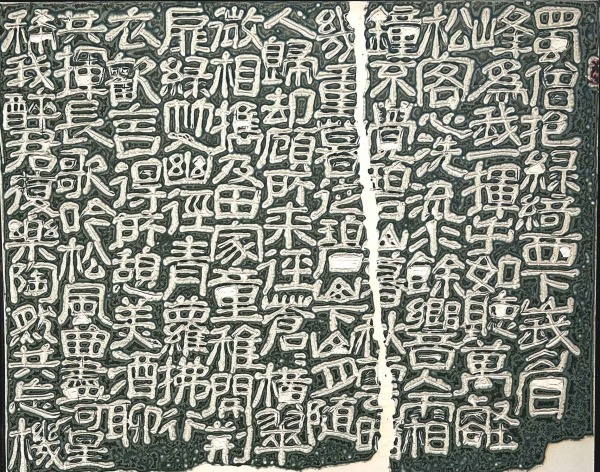 蜀僧抱綠綺西下峩眉
峰為我一揮手如聽萬壑
松客心洗流水餘響入霜
鐘不覺碧山暮秋雲暗
幾重暮從碧山下山月隨
人歸却顧所来徑蒼〻橫翠
微相攜及田家童稚開荊
扉綠竹入幽徑青蘿拂行
衣歡言得所憩美酒聊
共揮長歌吟松風曲盡河星
稀我醉君復樂陶然共忘機